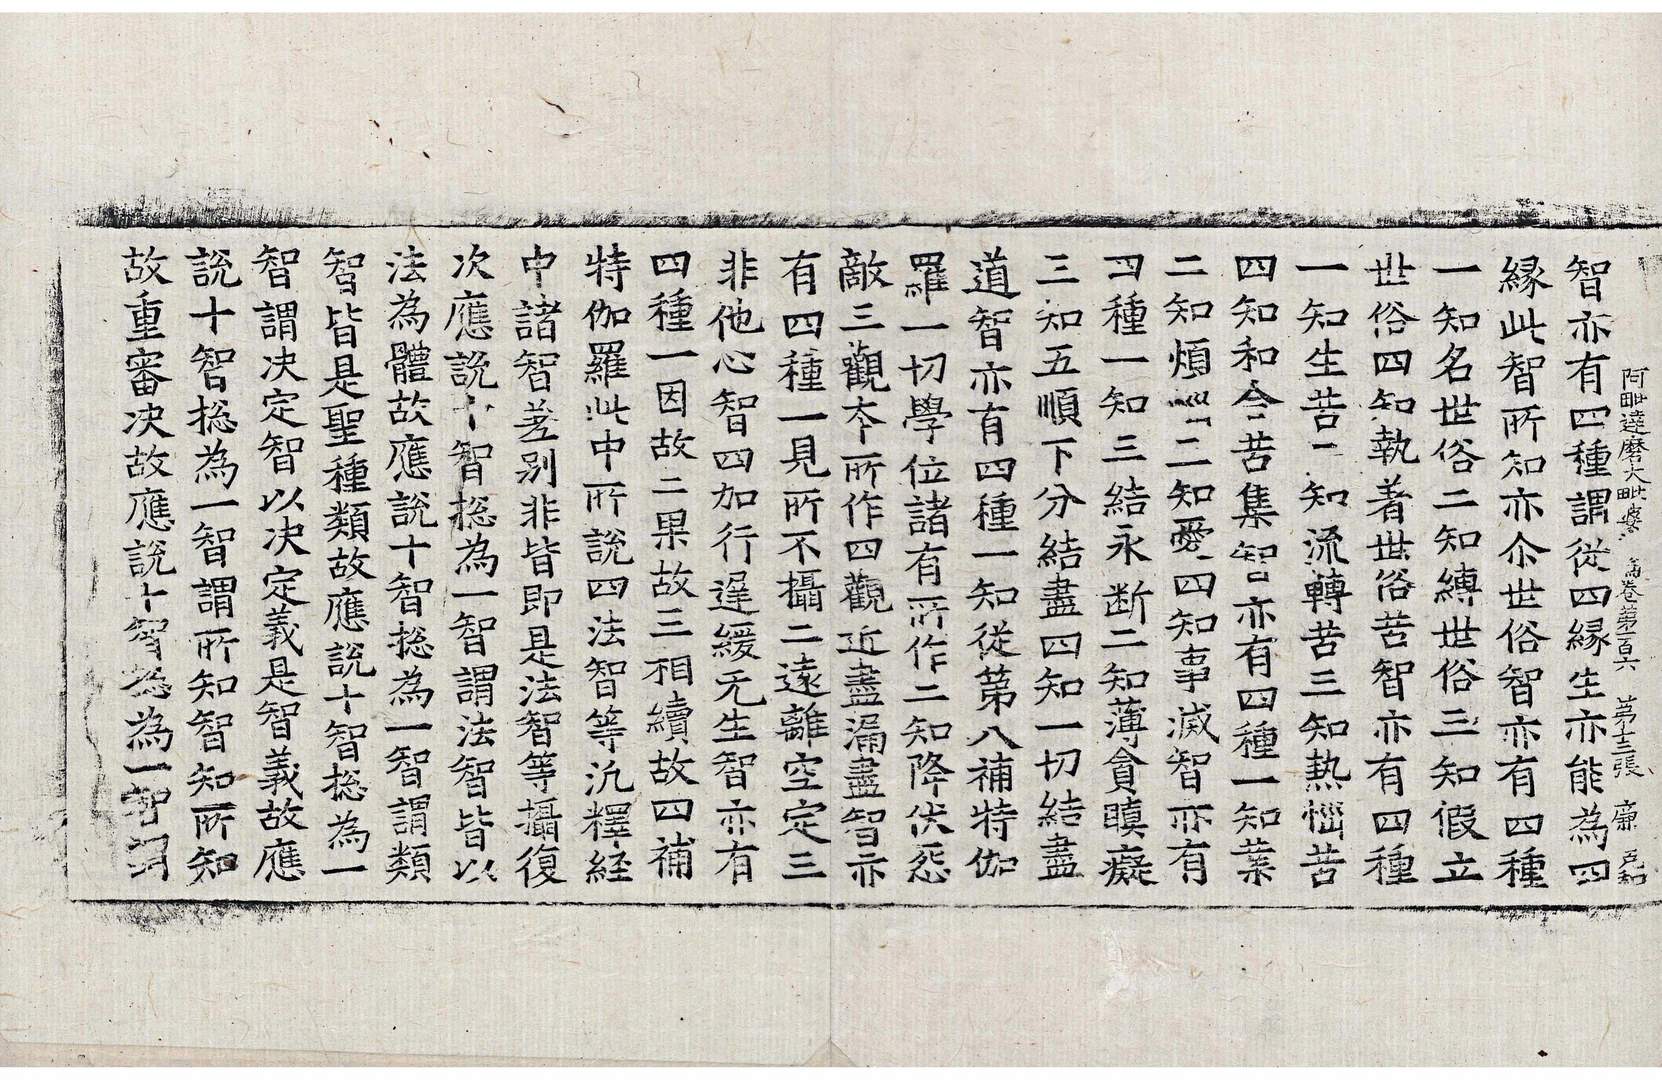 阿毗達磨大毗婆 卷第百六 第十三張 廉
智亦有四種謂從四緣生亦能為四
緣此智所知亦尒世俗智亦有四種
一知名世俗二知縛世俗三知假立
世俗四知執著世俗苦智亦有四種
一知生苦二知流轉苦三知熱惱苦
四知和合苦集智亦有四種一知業
二知煩惱三知愛四知事滅智亦有
四種一知三結永断二知薄貪瞋癡
三知五順下分結盡四知一切結盡
道智亦有四種一知從第八補特伽
羅一切學位諸有所作二知降伏怨
敵三觀本所作四觀近盡漏盡智亦
有四種一見所不攝二遠離空定三
非他心智四加行遅緩无生智亦有
四種一因故二果故三相續故四補
特伽羅此中所說四法智等汎釋経
中諸智差別非皆即是法智等攝復
次應說十智揔為一智謂法智皆以
法為體故應說十智揔為一智謂類
智皆是聖種類故應說十智揔為一
智謂决定智以决定義是智義故應
說十智揔為一智謂所知智知所知
故重審决故應說十智揔為一智謂